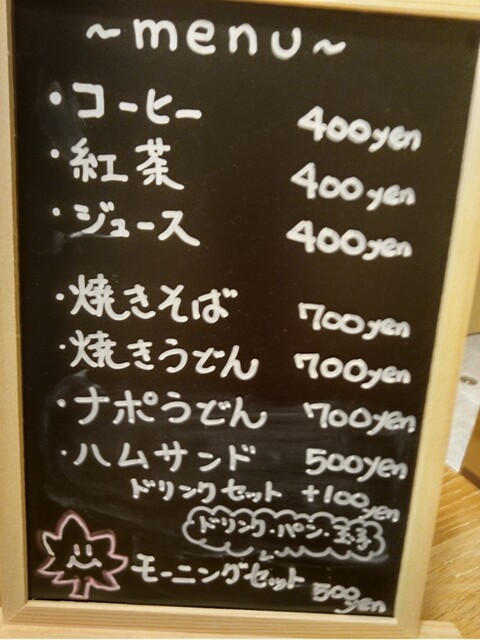 ~menu~
・コーヒー 400yen
・紅茶 400yen
・ジュース 400yen
・焼きそば 700yen
・焼きうどん 700yen
・ナポうどん 700yen
・ハムサンド 500yen
ドリンクセット +100yen
ドリンク・パン・玉子
モーニングセット 500yen